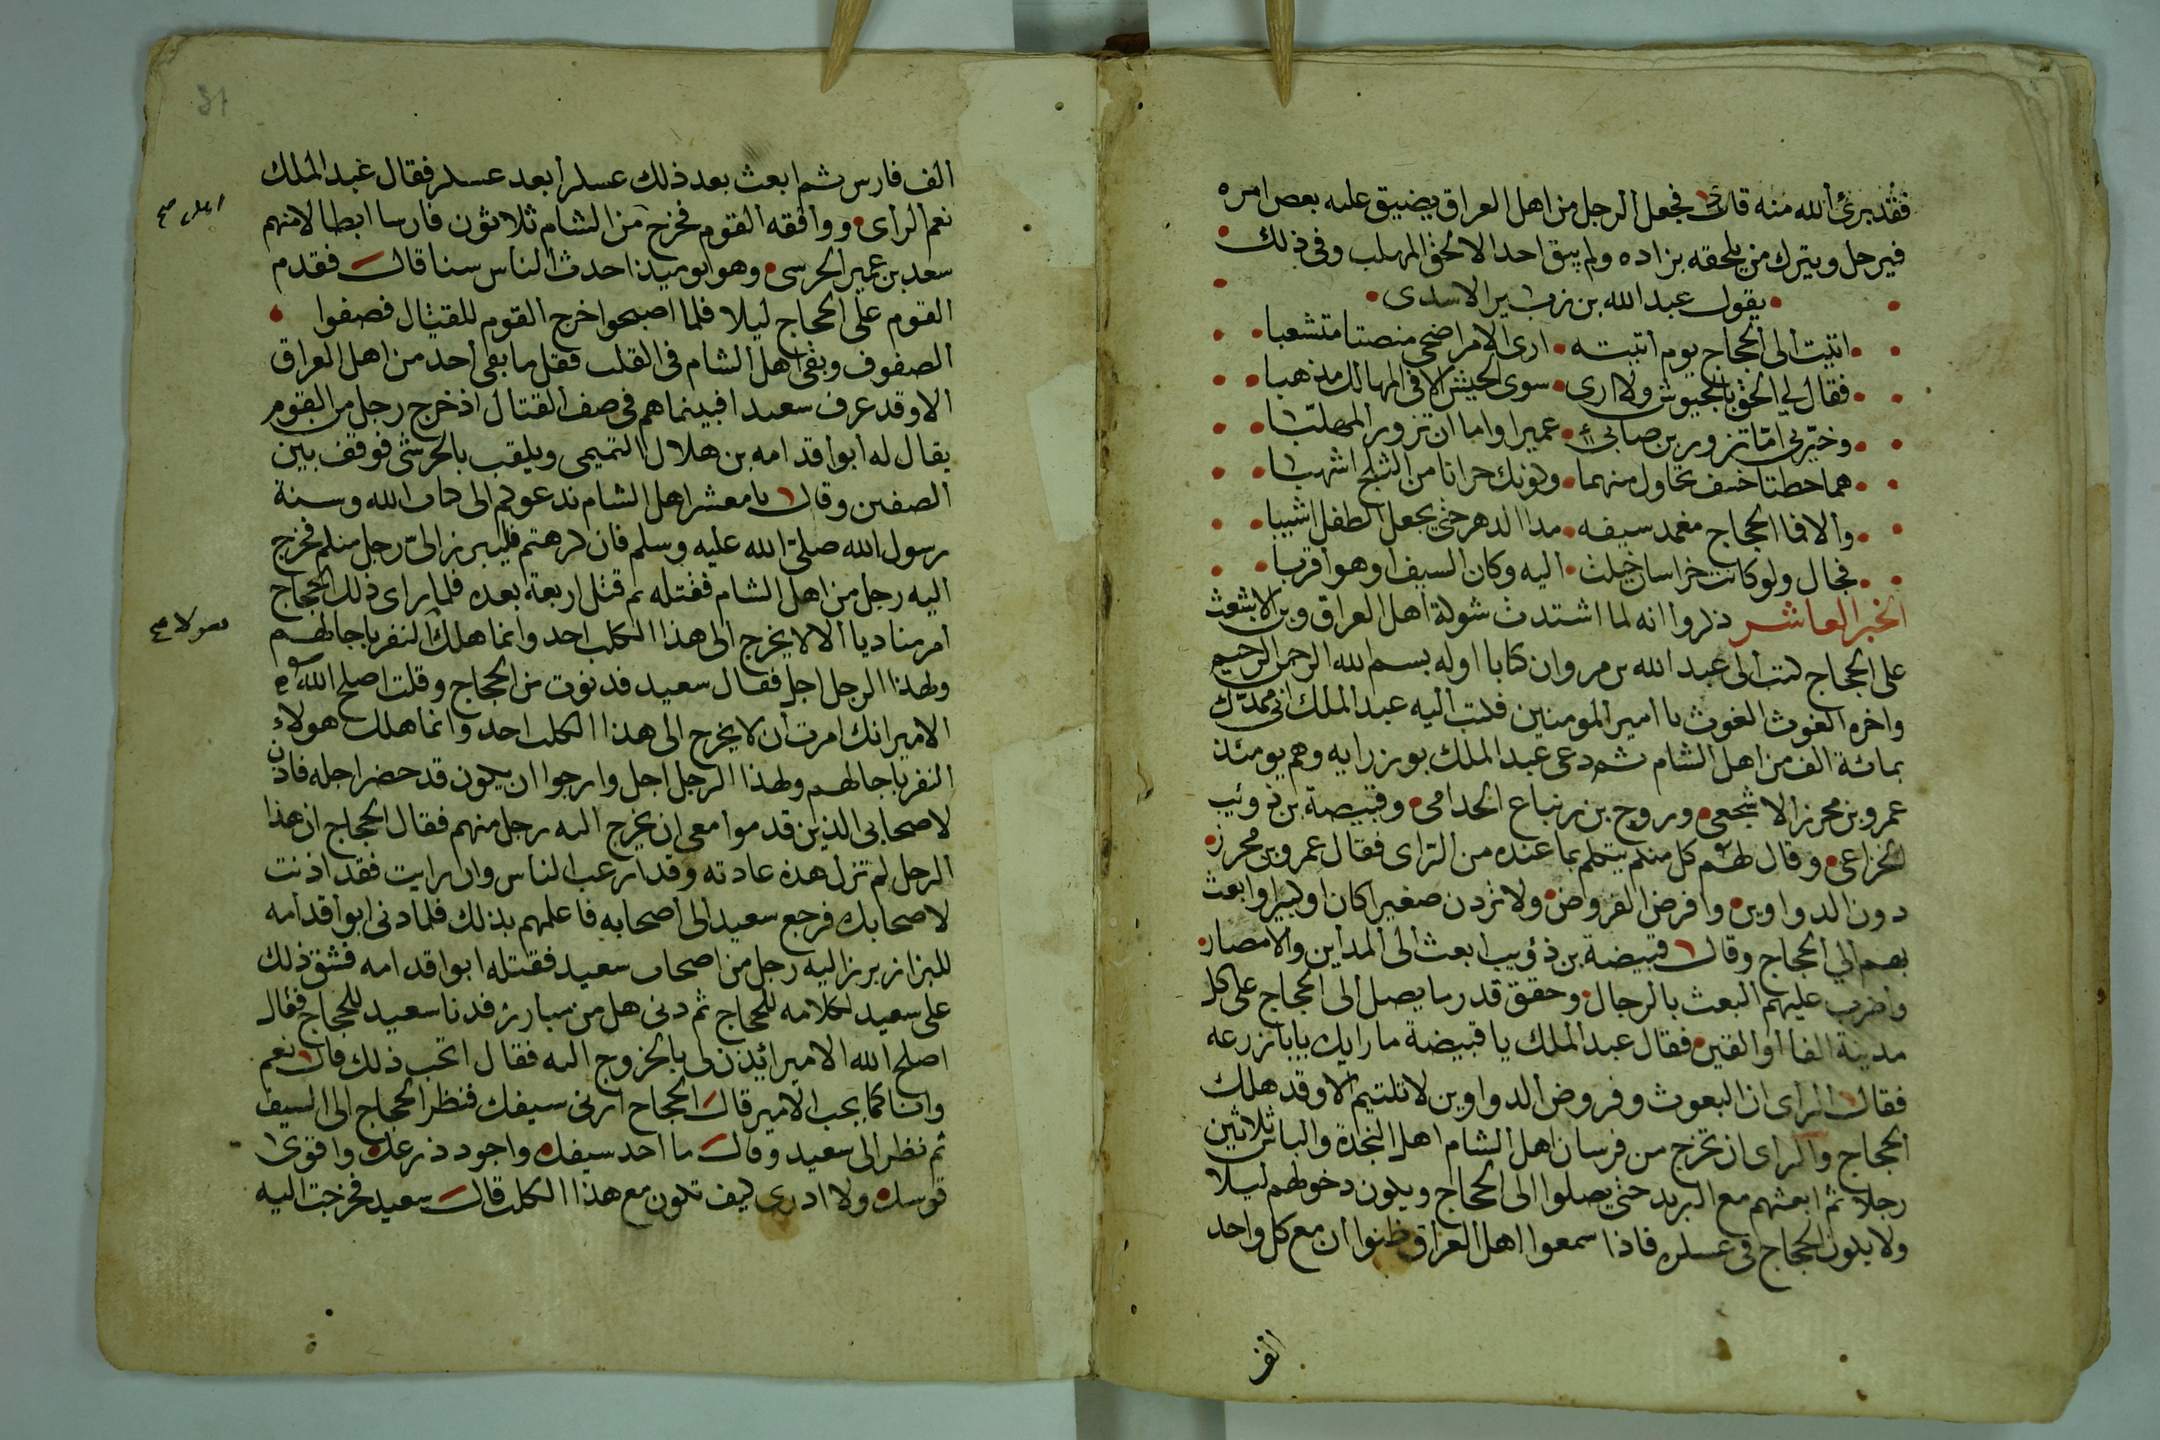 فقد برئ الله منه قال فجعل الرجل من اهل العراق يضيق عليه بعض امره
فيرحل ويترك من يلحقه بزاده ولم يبق احد الا لحق المهلب وفى ذلك
يقول عبد الله بن زبير الاسدى
اتيت الى الحجاج يوم اتيته ارى الامر اضحى منصتا متشعبا
فقال لي الحق بالجيوش ولا ارى سوى الجيش الا فى المهالك مذهبا
وخيرني اما تزور بن صابئ عميرا واما ان تزور المهلبا
هما خطتا خسف تحاول منهما ركوبك حرانا من الثلج اشهبا
والا فا الحجاج مغمد سيفه مدا الدهر حتى يجعل الطفل اشيبا
فجال ولو كانت خراسان خيلت اليه وكان السيف او هو اقربا
الخبر العاشر ذكروا انه لما اشتدت شوكة اهل العراق وبن الاشعث
على الحجاج كتب الى عبد الله بن مروان كتابا اوله بسم الله الرحمن الرحيم
واخره الغوث الغوث يا امير المومنين فكتب اليه عبد الملك انى ممدك
بمائة الف من اهل الشام ثم دعى عبد الملك بوزرايه وهم يومئذ
عمرو بن محرز الاشجعى وروح بن زنباع الجدامى وقبيصة بن ذوئيب
الخزاعى وقال لهم كل منكم يتكلم بما عنده من الراى فقال عمرو بن محرز
دون الدواوين وافرض الفروض ولا تردن صغيرا كان او كبيرا وابعث
بهم الي الحجاج وقال قبيضة بن ذؤيب ابعث الى المداين والامصار
واضرب عليهم البعث بالرجال وحقق قدر ما يصل الى الحجاج على كل
مدينة الفا او الفين فقال عبد الملك يا قبيضة ما رايك يابا زرعه
فقال الراى ان البعوث وفروض الدواوين لا تلتيم الا وقد هلك
الحجاج والراى ان تخرج من فرسان اهل الشام اهل النجدة والباس ثلاثين
رجلا ثم ابعثهم مع البريد حتى يصلوا الى الحجاج ويكون دخولهم ليلا
ولا يكون الحجاج فى عسكره فاذا سمعوا اهل العراق ظنوا ان مع كل واحد
الف
31
الف فارس ثم ابعث بعد ذلك عسكرا بعد عسكر فقال عبد الملك
نعم الراى ووافقه القوم فخرج من الشام ثلاثون فارسا ابطالا منهم
سعد بن عمير الحرسى وهو يوميذ احدث الناس سنا قال فقدم
القوم على الحجاج ليلا فلما اصبحوا خرج القوم للقتال فصفوا
الصفوف وبقى اهل الشام فى القلب فقل ما بقى احد من اهل العراق
الا وقد عرف سعيدا فبينما هم فى صف القتال اذ خرج رجل من القوم
يقال له ابوا قدامه بن هلال التميمى ويلقب بالحرشى فوقف بين
الصفين وقال يا معشر اهل الشام ندعوكم الى كتاب الله وسنة
رسول الله صلى الله عليه وسلم فان كرهتم فليبرز الى رجل منكم فخرج
اليه رجل من اهل الشام فقتله ثم قتل اربعة بعده فلما راى ذلك الحجاج
امر مناديا الا لا يخرج الى هذا الكلب احد وانما هلك النفر باجالهم
ولهذا الرجل اجل فقال سعيد فدنوت من الحجاج وقلت اصلح الله
الامير انك امرت ان لا يخرج الى هذا الكلب احد وانما هلك هولاء
النفر باجالهم ولهذا الرجل اجل وارجوا ان يكون قد حضر اجله فاذن
لاصحابى الذين قدموا معى ان يخرج اليه رجل منهم فقال الحجاج ان هذا
الرجل لم تزل هذه عادته وقد ارعب الناس وان رايت فقد اذنت
لاصحابك فرجع سعيد الى اصحابه فاعلمهم بذلك فلما دنى ابوا قدامه
للبراز برز اليه رجل من اصحاب سعيد فقتله ابوا قدامه فشق ذلك
على سعيد لكلامه للحجاج ثم دنى هل من مبارز فدنا سعيد للحجاج فقال
اصلح الله الامير ائذن لى بالخروج اليه فقال اتحب ذلك قال نعم
وانا كما يحب الامير قال الحجاج ارنى سيفك فنظر الحجاج الى السيف
ثم نظر الى سعيد وقال ما احد سيفك واجود ذرعك واقوى
قوسك ولا ادرى كيف تكون مع هذا الكلب قال سعيد فخرجت اليه